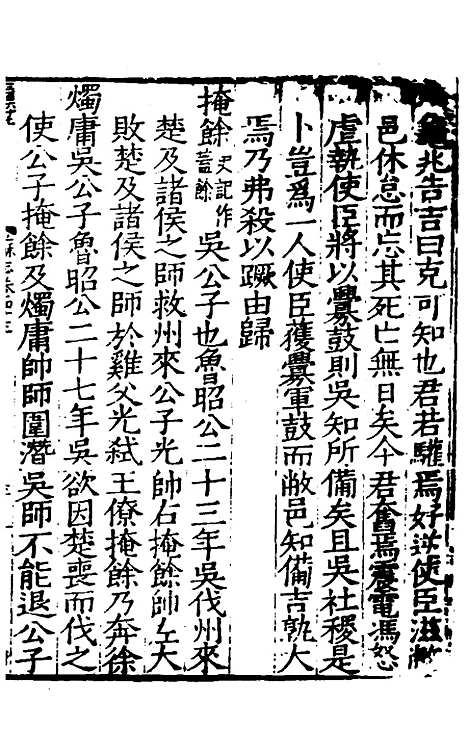 兆告吉曰克可知也君若驩焉好逆使臣滋敝
邑休怠而忘其死亡無日矣今君奮焉震電馮怒
虐執使臣將以釁鼓則吳知所備矣且吳社稷是
卜豈爲一人使臣獲釁軍鼓而敝邑知備吉孰大
焉乃弗殺以蹶由歸
掩餘史記作蓋餘吳公子也魯昭公二十三年吳伐州來
楚及諸侯之師救州來公子光帥右掩餘帥左大
敗楚及諸侯之師於雞父光弑王僚掩餘乃奔徐
燭庸吳公子魯昭公二十七年吳欲因楚喪而伐之
使公子掩餘及燭庸帥師圍潛吳師不能退公子